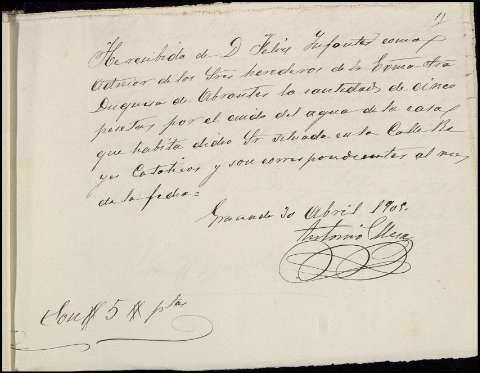 He recibido de D Felix Infantes como
Admor de los Sres herederos de la Exma Sra
Duquesa de Abrantes la cantidad de cinco
pesetas por el cuido del agua de la casa
que habita dicho Sr situada en la Calle Re
yes Catolicos y son correspondientes al mes
de la fecha=
Granada 30 Abril 1909.
Antonio
Son # 5 # ptas